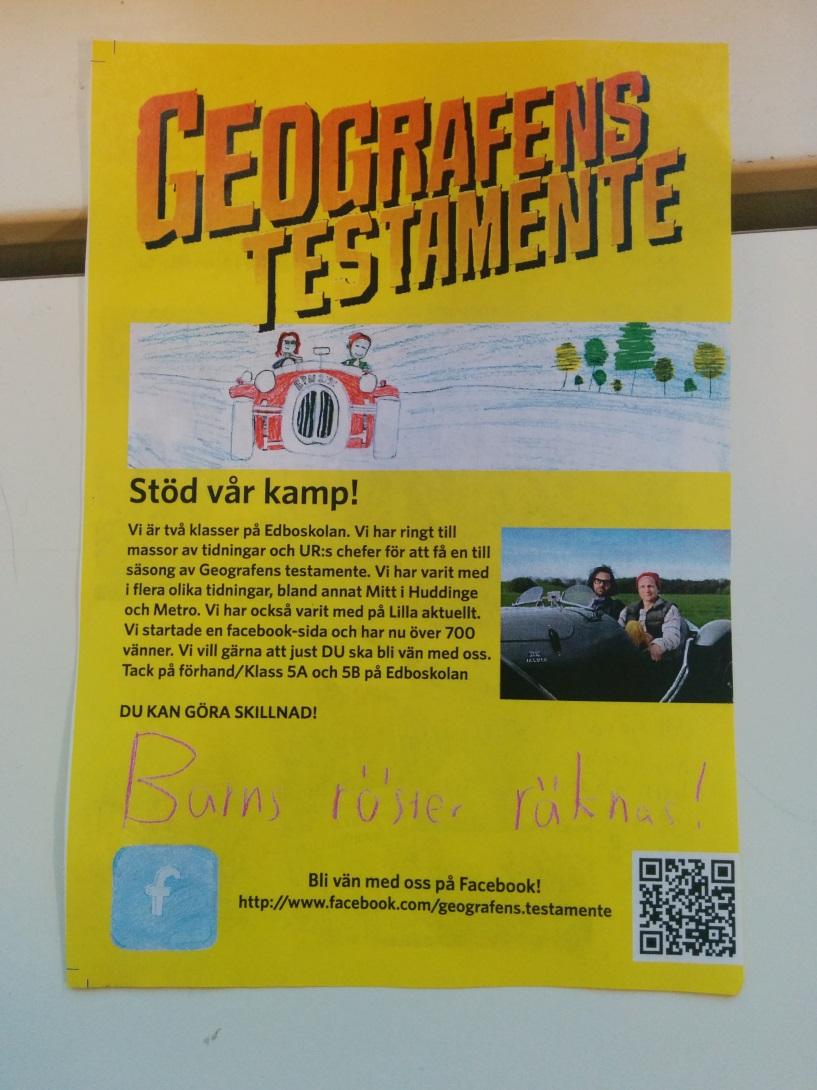 GEOGRAFENS
TESTAMENTE
Stöd vår kamp!
Vi är två klasser på Edboskolan. Vi har ringt till
massor av tidningar och UR:s chefer för att få en till
säsong av Geografens testamente. Vi har varit med
i flera olika tidningar, bland annat Mitt i Huddinge
och Metro. Vi har också varit med på Lilla aktuellt.
Vi startade en facebook-sida och har nu över 700
vänner. Vi vill gärna att just DU ska bli vän med oss.
Tack på förhand/Klass 5A och 5B på Edboskolan
DU KAN GÖRA SKILLNAD!
Barns röster räknas!
f
Bli vän med oss på Facebook!
http://www.facebook.com/geografens.testamente